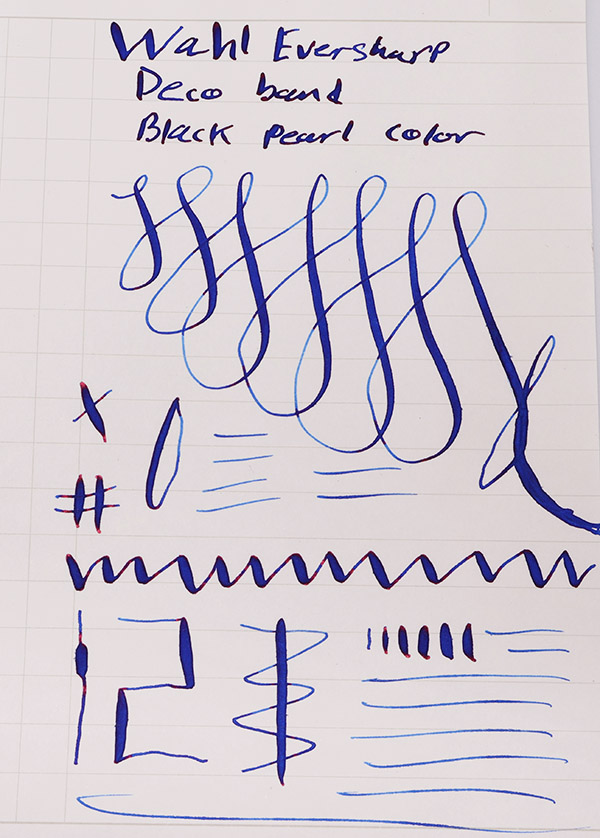 Wahl Eversharp
Deco band
Black pearl color